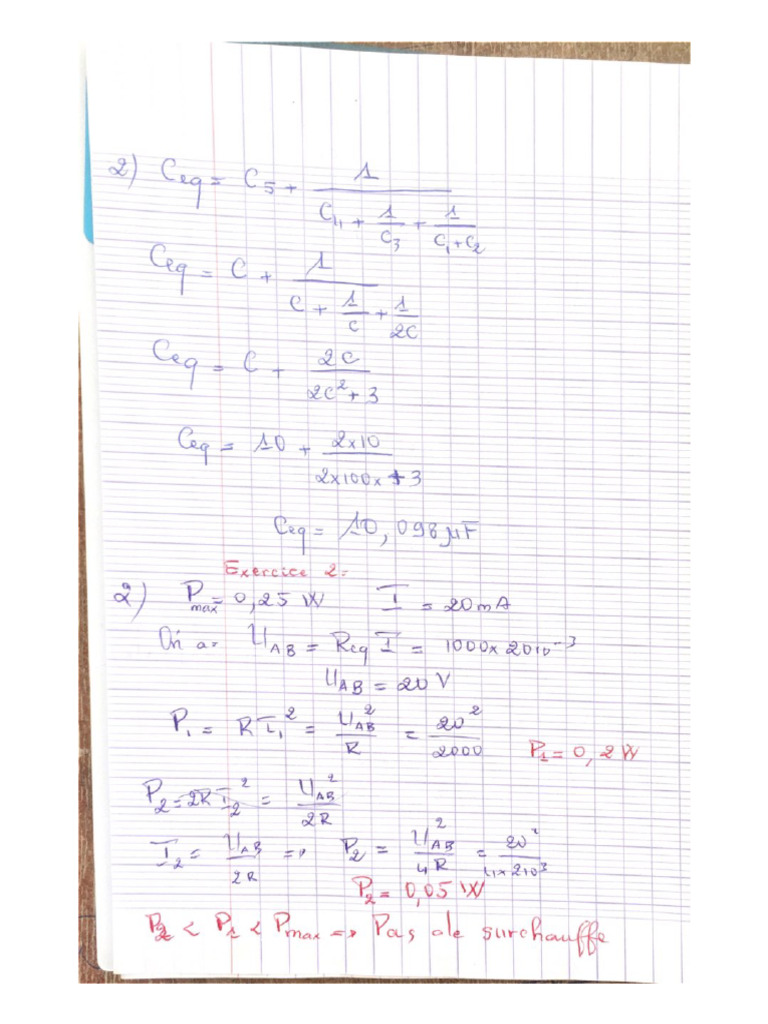 2) Ceq = C5 + 1 / (C4 + 1/C3 + 1/(C1+C2))
Ceq = C + 1 / (C + 1/C + 1/2C)
Ceq = C + 2C / (2C² + 3)
Ceq = 10 + 2x10 / (2x100x + 3)
Ceq = 10,098 µF
Exercice 2:
2) Pmax = 0,25 W I = 20mA
On a: UAB = Req I = 1000x 20 10⁻³
UAB = 20 V
P1 = R I1² = UAB² / R = 20² / 2000 P1 = 0,2 W
P2 = 2R I2² = UAB² / 2R
I2 = UAB / 2R => P2 = UAB² / 4R = 20² / 4x 2 10³
P2 = 0,05 W
P2 < P1 < Pmax => Pas de surchauffe